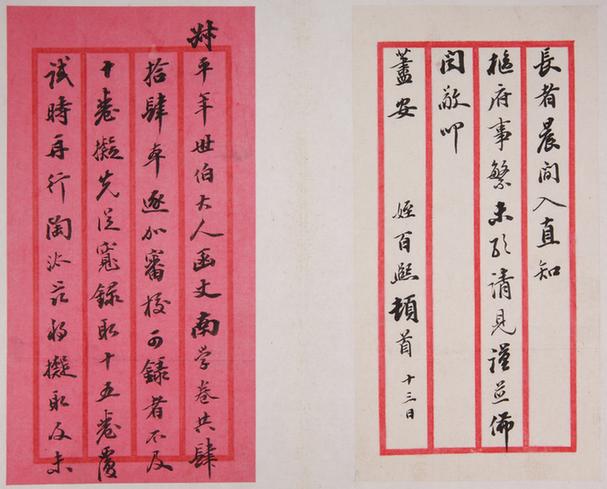 長者晨間入直知
樞府事繁未敢請見謹並佈
聞敬叩
藎安
姪百熙頓首 十三日
叔平年世伯大人函丈南学卷共肆
拾肆本逐加審校可錄者不及
十卷擬先從寬錄取十五卷覆
試時再行淘汰茲將擬取及未